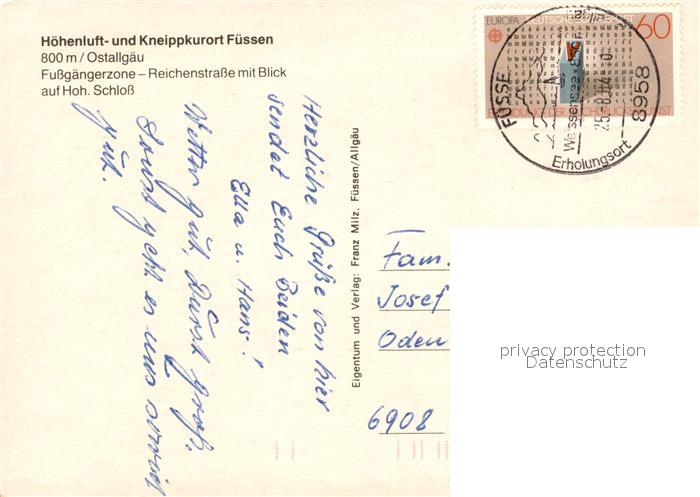 Höhenluft- und Kneippkurort Füssen
800 m / Ostallgäu
Fußgängerzone – Reichenstraße mit Blick
auf Hoh. Schloß
Herzliche Grüße von hier
sendet Euch Beiden
Ella u. Hans!
Wetter gut, Durst groß.
Sonst geht es uns soweit
gut.
Eigentum und Verlag: Franz Milz, Füssen/Allgäu
EUROPA DEUTSCHE BUNDESPOST 60
ERFINDUNG DER BUCHDRUCKKUNST
FÜSSEN
8958
Weissensee
Erholungsort
Fam.
Josef
Oden
6908
privacy protection
Datenschutz